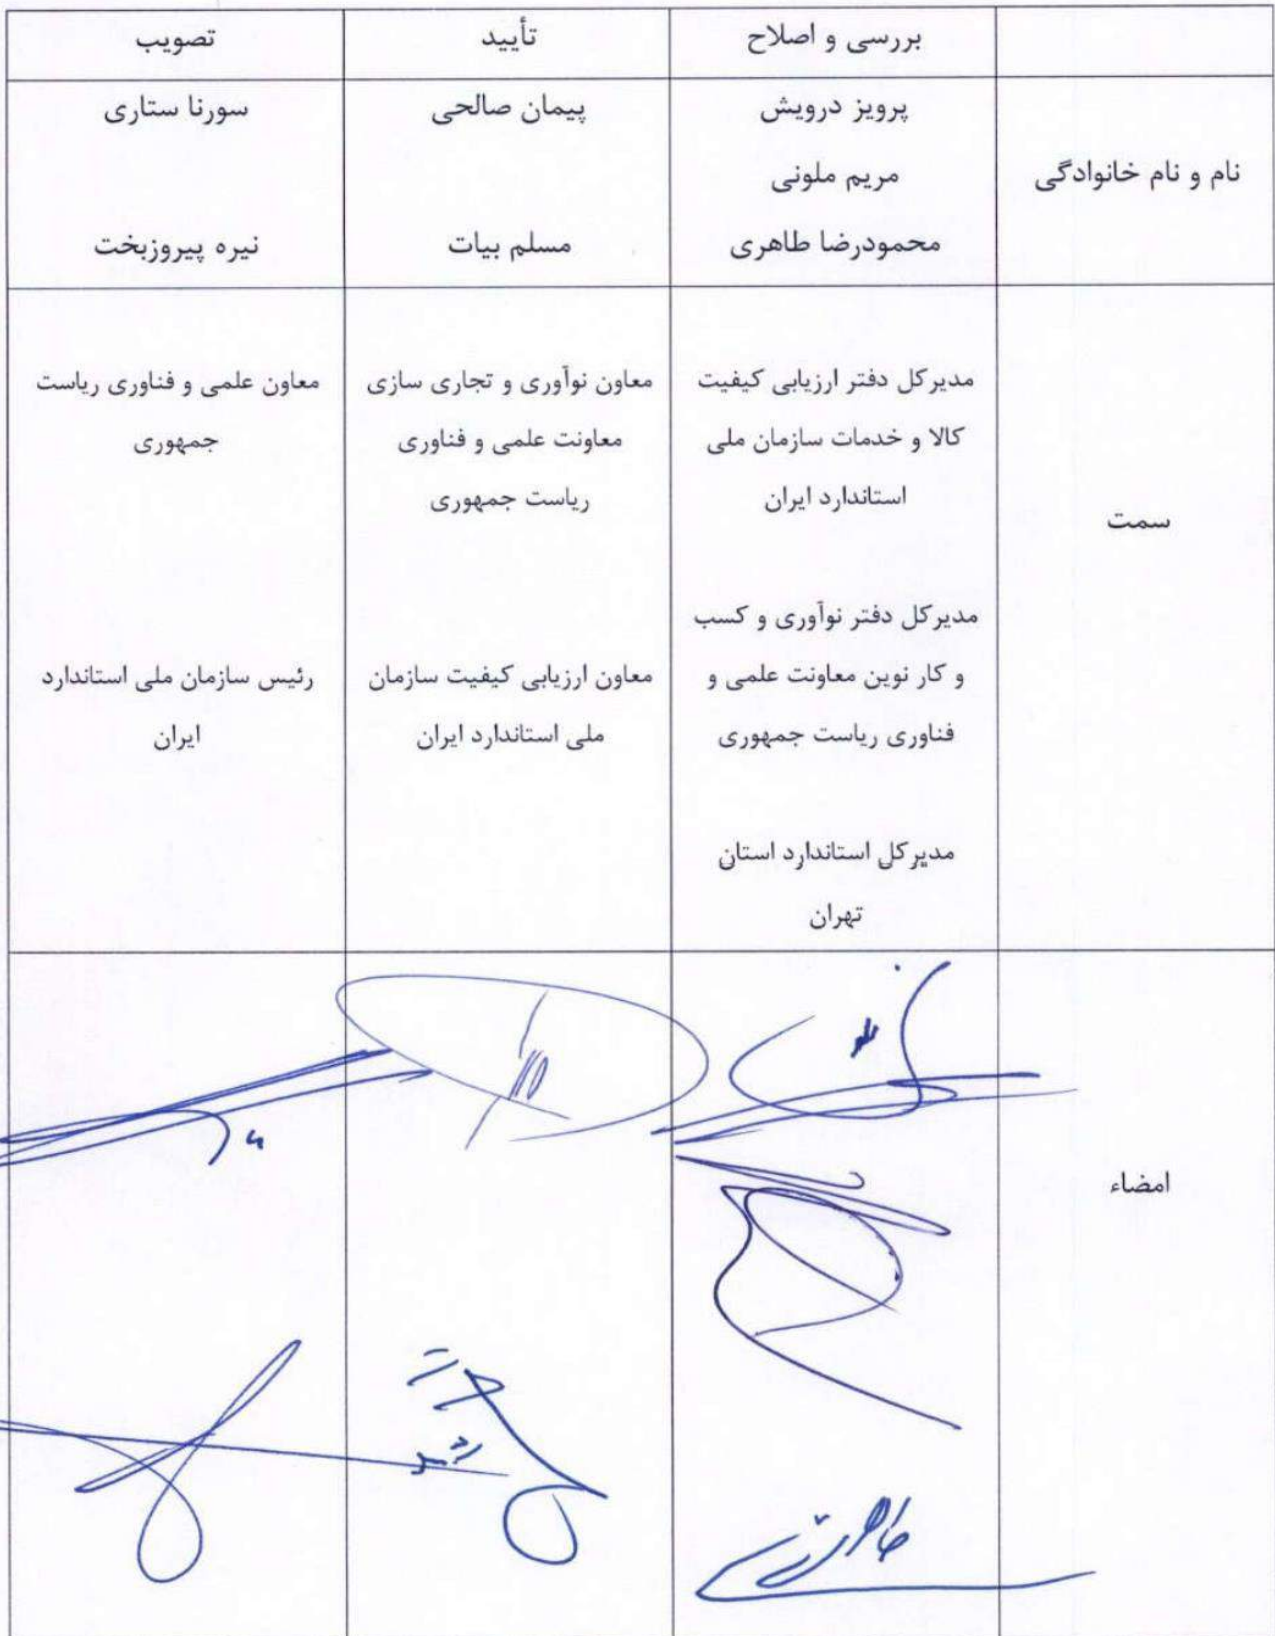 بررسی و اصلاح
تأیید
تصویب
نام و نام خانوادگی
پرویز درویش
مریم ملونی
محمودرضا طاهری
پیمان صالحی
مسلم بیات
سورنا ستاری
نیره پیروزبخت
سمت
مدیرکل دفتر ارزیابی کیفیت
کالا و خدمات سازمان ملی
استاندارد ایران
مدیرکل دفتر نوآوری و کسب
و کار نوین معاونت علمی و
فناوری ریاست جمهوری
مدیرکل استاندارد استان
تهران
معاون نوآوری و تجاری سازی
معاونت علمی و فناوری
ریاست جمهوری
معاون ارزیابی کیفیت سازمان
ملی استاندارد ایران
معاون علمی و فناوری ریاست
جمهوری
رئیس سازمان ملی استاندارد
ایران
امضاء